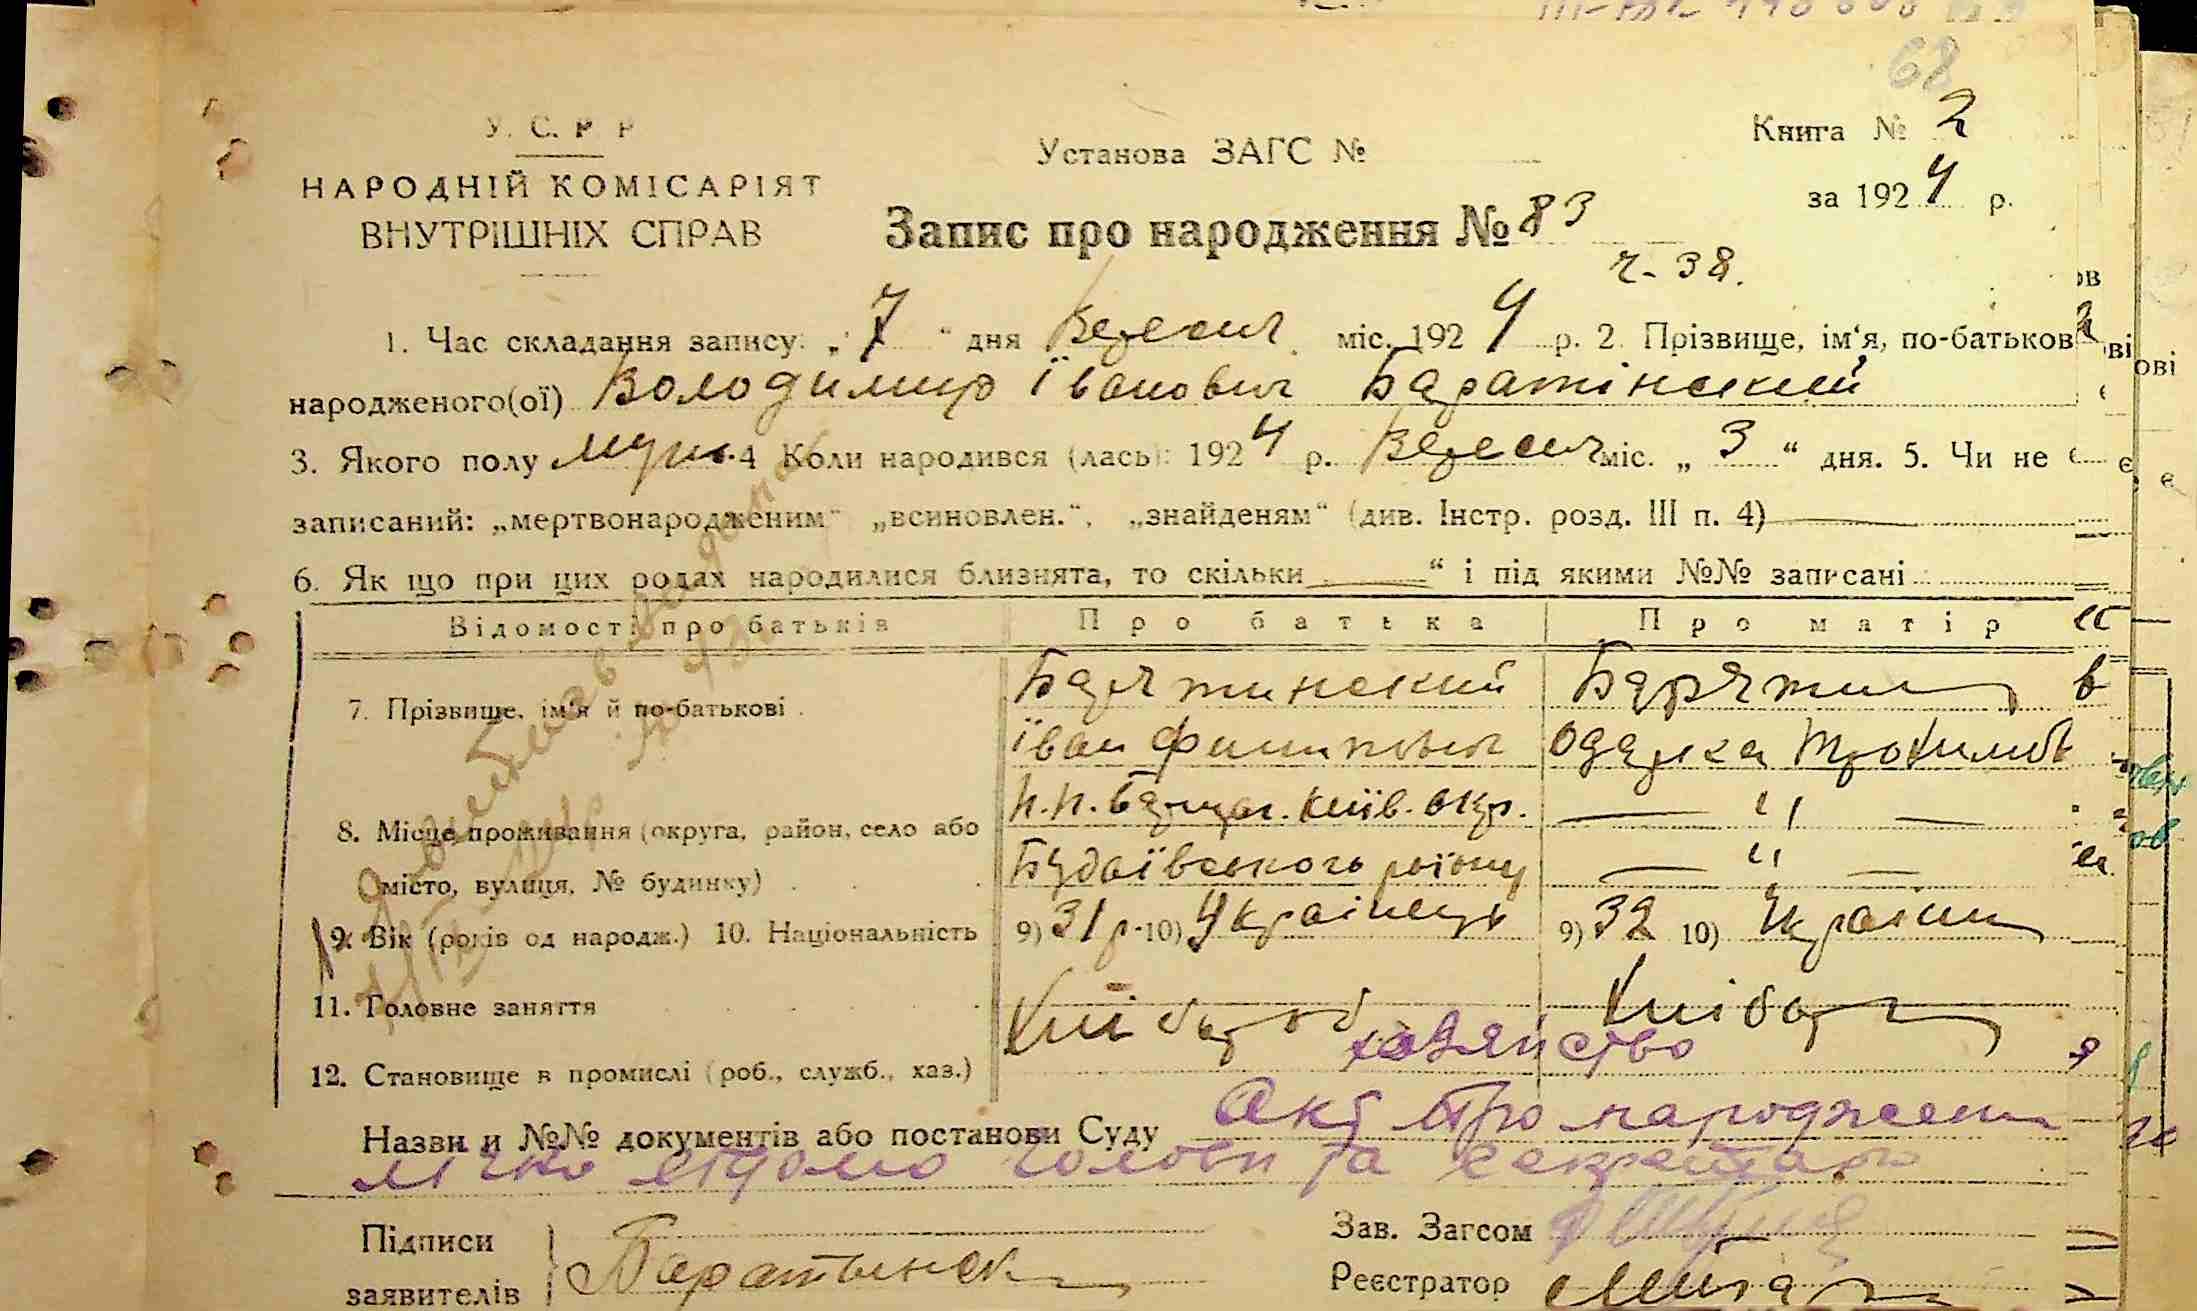 68
У. С. Р. Р.
НАРОДНІЙ КОМІСАРІЯТ
ВНУТРІШНІХ СПРАВ
Установа ЗАГС №
Книга № 2
за 1924 р.
Запис про народження № 83
ч-38.
1. Час складання запису: „7“ дня Вересня міс. 1924 р. 2. Прізвище, ім'я, по-батьков
народженого(ої) Володимир Іванович Баратінский
3. Якого полу муж. 4 Коли народився (лась): 1924 р. Вересня міс. „3“ дня. 5. Чи не є
записаний: „мертвонародженим“ „всиновлен.“, „знайденям“ (див. Інстр. розд. III п. 4)
6. Як що при цих родах народилися близнята, то скільки „ “ і під якими №№ записані
Відомості про батьків Про батька Про матір
7. Прізвище, ім'я й по-батькові
Барятинский Барятин
Іван Филипович Одарка Трохимов
8. Місце проживання (округа, район, село або
місто, вулиця, № будинку)
Київ. окр. — “ —
Будаївського району — “ —
9. Вік (років од народж.) 10. Національність 9) 31 р. 10) Українець 9) 32 10) Україн
11. Головне заняття
Хлібороб Хлібор
хазяйство
12. Становище в промислі (роб., служб., хаз.)
Назви и №№ документів або постанови Суду Акт про народжен
голови та секретаря
Підписи
заявителів
Баратынск
Зав. Загсом
Реєстратор